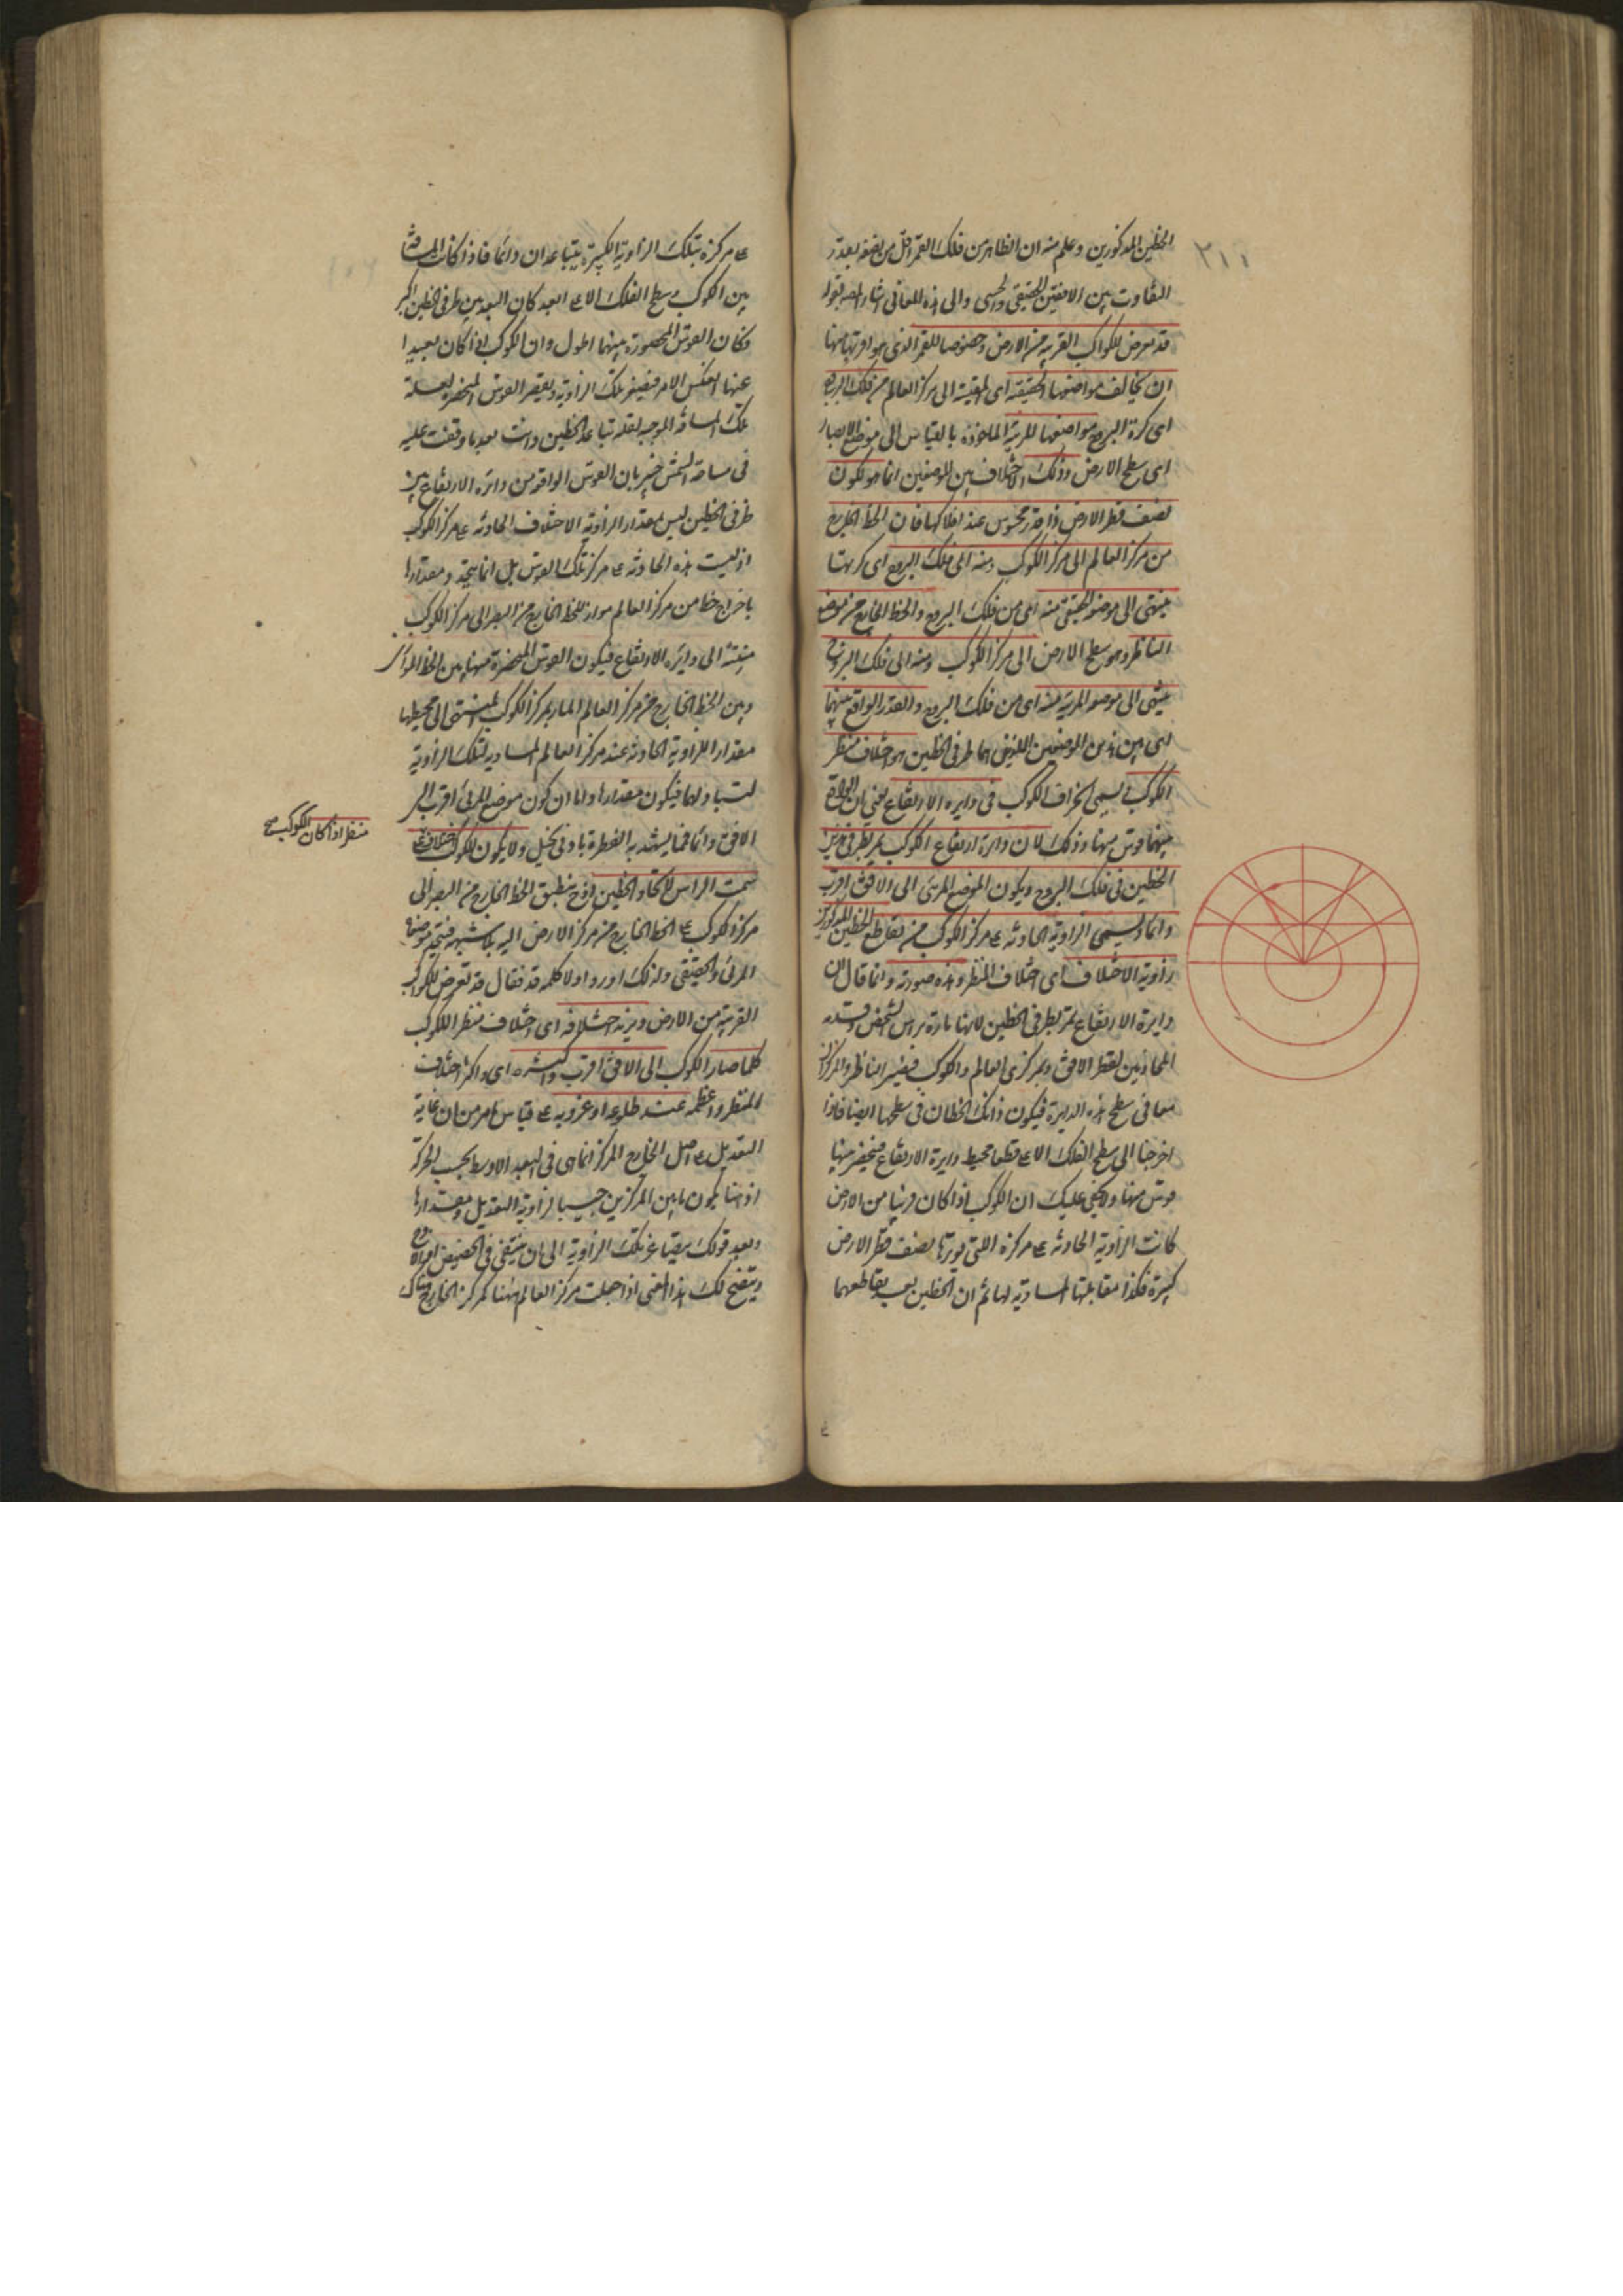 الخطين المذكورين وعلم منه ان الظاهر من فلك القمر اقل من نصفه بقدر
التفاوت بين الافقين الحقيقي والحسي والى هذه المعاني اشار المصـ بقوله
قد يعرض للكواكب القريبة من الارض وخصوصا للقمر الذى هو اقربها منها
ان يخالف مواضعها الحقيقية اى المقيسة الى مركز العالم من فلك البروج
اى كرة البروج مواضعها المرئية الماخوذة بالقياس الى موضع الابصار
اى سطح الارض وذلك الاختلاف بين الموضعين انما هو لكون
نصف قطر الارض ذا قدر محسوس عند افلاكها فان الخط الخارج
من مركز العالم الى مركز الكوكب ومنه الى فلك البروج اى كرتها
ينتهى الى موضعه الحقيقي منه اى من فلك البروج والخط الخارج من موضع
الناظر وهو سطح الارض الى مركز الكوكب ومنه الى فلك البروج
ينتهى الى موضعه المرئي منه اى من فلك البروج والقدر الواقع بينهما
اى بين هذين الموضعين اللذين هما طرفى الخطين هو اختلاف منظر
الكوكب يسمى انحراف الكوكب فى دايرة الارتفاع يعنى ان الواقع
بينهما قوس منها وذلك لان دايرة ارتفاع الكوكب تمر بطرفى هذين
الخطين فى فلك البروج ويكون الموضع المرئى الى الافق اقرب
دائما ويسمى الزاوية الحادثة على مركز الكوكب من تقاطع الخطين المذكورين
زاوية الاختلاف اى اختلاف المنظر وهذه صورته وانما قال ان
دايرة الارتفاع تمر بطرفى الخطين لانها مارة براس الشخص وقدمه
المحاذيين لقطر الافق وبمركزى العالم والكوكب فيصير الناظر والمركزان
معا فى سطح هذه الدايرة فيكون ذانك الخطان فى سطحها ايضا فاذا
اخرجا الى سطح الفلك الاعلى قطعا محيط دايرة الارتفاع فينحصر منها
قوس منها ولا يخفى عليك ان الكوكب اذا كان قريبا من الارض
كانت الزاوية الحادثة على مركزه التى يوترها نصف قطر الارض
كبيرة فكذا مقابلتها المساوية لها ثم ان الخطين بعد تقاطعهما
على مركزه بتلك الزاوية الكبيرة يتباعدان دائما فاذا كانت المسافة
بين الكوكب وسطح الفلك الاعلى ابعد كان البعد بين طرفى الخطين اكبر
وكان القوس المحصورة بينهما اطول وان الكوكب اذا كان بعيدا
عنها انعكس الامر فيصغر تلك الزاوية ويقصر القوس المنحصرة لقلة
تلك المسافة الموجبة لقلة تباعد الخطين وانت بعد ما وقفت عليه
فى مساحة الشمس خبير بان القوس الواقعة من دايرة الارتفاع بين
طرفى الخطين ليس بمقدار الزاوية الاختلاف الحادثة على مركز الكوكب
اذ ليست هذه الحادثة على مركز تلك القوس بل انما يتحد ومقدارها
باخراج خط من مركز العالم مواز للخط الخارج من البصر الى مركز الكوكب
منتهيا الى دايرة الارتفاع فيكون القوس المنحصرة منها بين الخط الموازى
وبين الخط الخارج من مركز العالم المار بمركز الكوكب المنتهى الى محيطها
مقدار للزاوية الحادثة عند مركز العالم المساوية لتلك الزاوية
لتبادلهما فيكون مقدارها واما ان كون موضع المرئى اقرب الى
الافق دائما فمما يشهد به الفطرة بادنى تخيل ولا يكون للكوكب اختلاف
منظر اذا كان الكوكب صح
سمت الراس لاتحاد الخطين اذ ح ينطبق الخط الخارج من البصر الى
مركز الكوكب على الخط الخارج من مركز الارض اليه بلا شبهة فيتحد موضعاه
المرئى والحقيقى ولذلك اورد اولا كلمة قد فقال قد يعرض للكواكب
القريبة من الارض ويزيد اختلافه اى اختلاف منظر الكوكب
كلما صار الكوكب الى الافق اقرب واكثره اى واكثر اختلاف
المنظر واعظمه عند طلوعه او غروبه على قياس ما مر من ان غاية
التعديل على اصل الخارج المركز انما هى فى البعد الاوسط بحسب الحركة
اذ هنا يكون ما بين المركزين جيبا لزاوية التعديل ومقدارها
وبعد ذلك يتصاغر تلك الزاوية الى ان ينتفى فى الحضيض او الاوج
ويتضح لك هذا المعنى اذا جعلت مركز العالم ههنا كمركز الخارج هناك